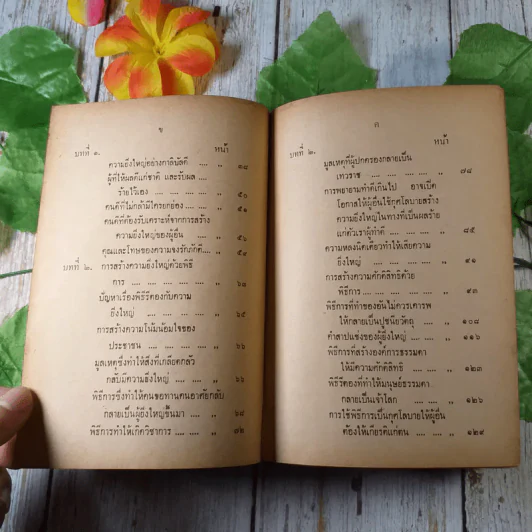 ข
บทที่ ๑. หน้า
ความยิ่งใหญ่อย่างกาลิบัลดี .... ,, ๑๘
ผู้ที่ให้ผลดีแก่ชาติ และรับผล ....
ร้ายไว้เอง .... .... .... ,, ๕๐
คนดีที่ไม่กล้ามีใครยกย่อง .... ,, ๕๑
คนดีที่ต้องรับเคราะห์จากการสร้าง
ความยิ่งใหญ่ของผู้อื่น .... ,, ๕๖
คุณและโทษของความจงรักภักดี.... ,, ๕๙
บทที่ ๒. การสร้างความยิ่งใหญ่ด้วยพิธี
การ .... .... .... .... .... ,, ๖๓
ปัญหาเรื่องพิธีรีตองกับความ
ยิ่งใหญ่ .... .... .... .... ,, ๖๕
การสร้างความโน้มน้อมใจของ
ประชาชน .... .... .... .... ,, ๖๖
มูลเหตุซึ่งทำให้สิ่งที่เกลียดกลัว
กลับมีความยิ่งใหญ่ .... .... ,, ๖๖
พิธีการซึ่งทำให้คนขอทานคนอาศัยกลับ
กลายเป็นผู้ยิ่งใหญ่ขึ้นมา .... ,, ๖๘
พิธีการทำให้เกิดวิชาการ .... .... ,, ๗๒
ค
บทที่ ๒. หน้า
มูลเหตุที่ผู้ปกครองกลายเป็น
เทวราช .... .... .... .... ,, ๗๔
การพยายามทำดีเกินไป อาจเปิด
โอกาสให้ผู้อื่นใช้กุศโลบายสร้าง
ความยิ่งใหญ่ในทางที่เป็นผลร้าย
แก่ตัวเราผู้ทำดี .... .... .... ,, ๘๕
ความหลงนิดเดียวทำให้เสียความ
ยิ่งใหญ่ .... .... .... .... ,, ๙๑
การสร้างความศักดิ์สิทธิ์ด้วย
พิธีการ .... .... .... .... ,, ๙๓
พิธีการที่ทำของอันไม่ควรเคารพ
ให้กลายเป็นปูชนียวัตถุ .... ,, ๑๐๘
คำสาปแช่งของผู้ยิ่งใหญ่ .... .... ,, ๑๑๖
พิธีการที่สร้างองค์การธรรมดา
ให้มีความศักดิ์สิทธิ์ .... .... ,, ๑๒๓
พิธีรีตองที่ทำให้มนุษย์ธรรมดา
กลายเป็นเจ้าโลก .... .... ,, ๑๒๖
การใช้พิธีการเป็นกุศโลบายให้ผู้อื่น
ต้องให้เกียรติแก่ตน .... .... ,, ๑๒๙